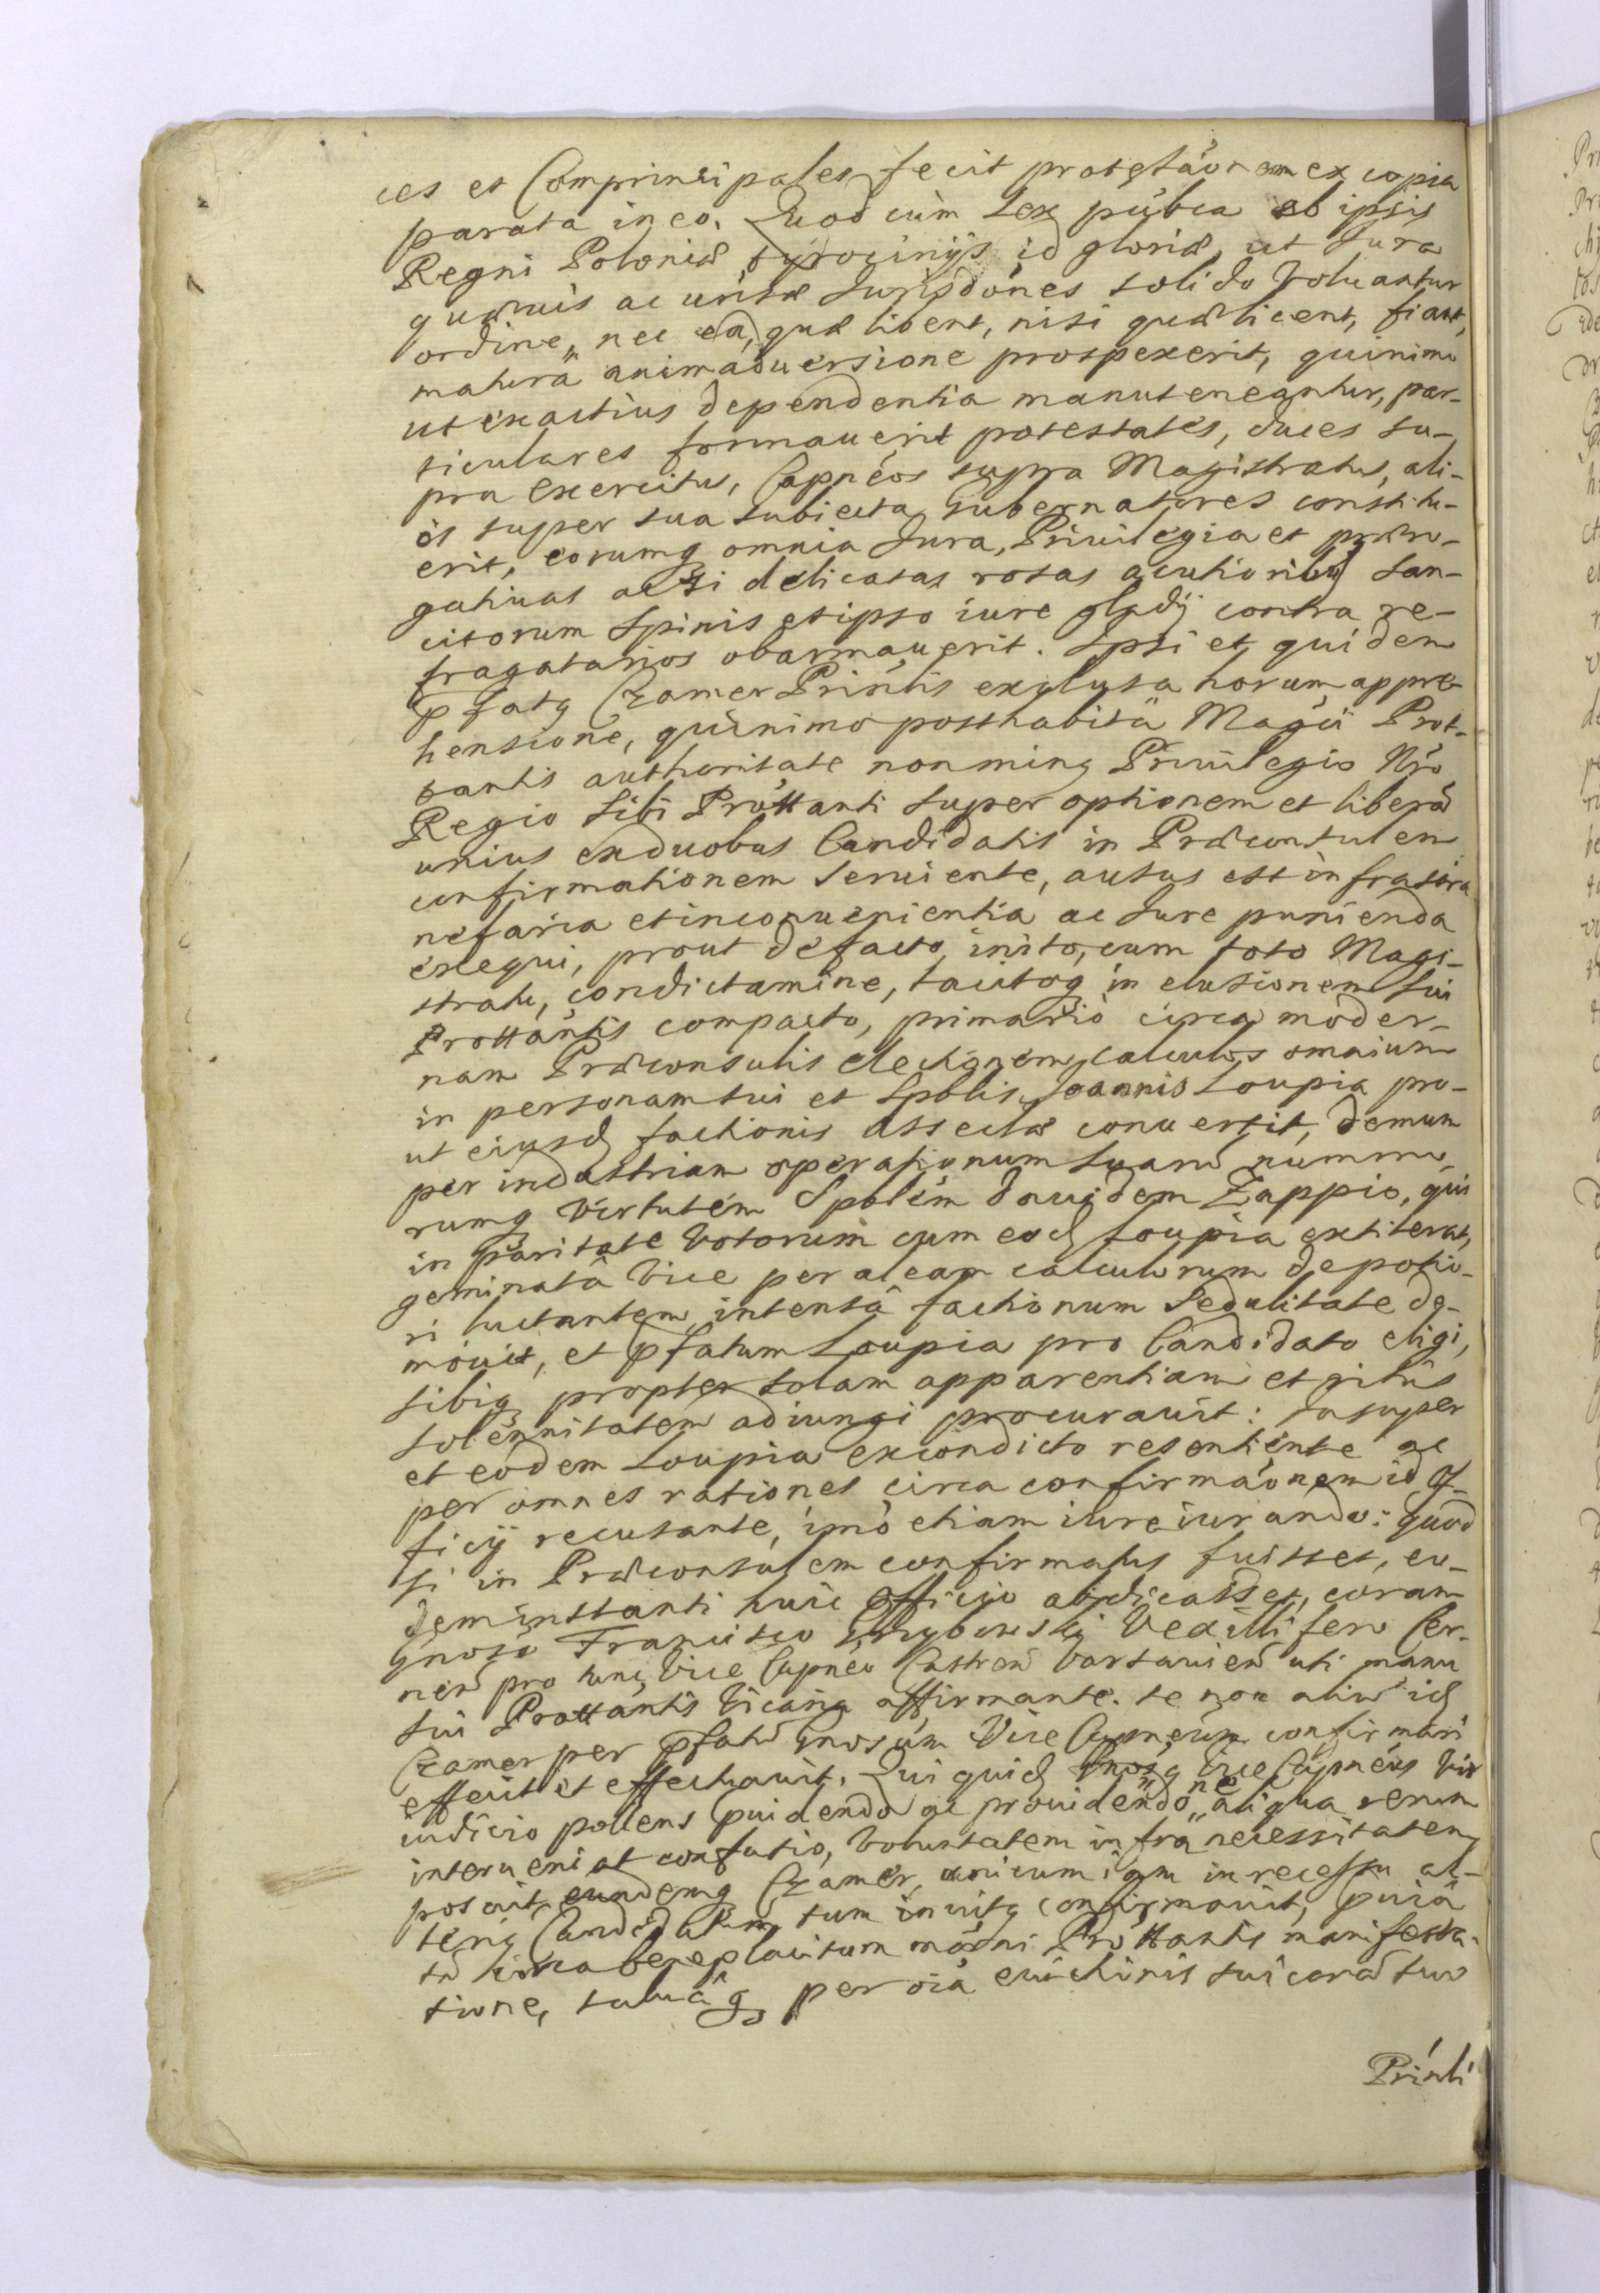 ces et Comprincipales fecit protestaõnem ex copia
parata in eo. Quod cùm Lex pub̃ca ab ipsis
Regni Poloniæ tyrocinijs id gloriæ, ut Jura
quævis ac uniũsæ Jurisdõnes solido volvantur
ordine, nec ea, quæ libent, nisi quæ licent, fiant,
matura animadversione prospexerit, quinimo
ut exactius dependentia manuteneantur, par-
ticulares formaverit potestates, duces su-
pra Exercitus, Capnẽos supra Magistratus, ali-
os super sua subiecta gubernatores constitu-
erit, eorumq omnia Jura, Privilegia et præro-
gativas ac si delicatas rosas acutioribq San-
citorum Spinis et ipso iure gladij contra re-
fragatarios obarmaverit. Ipsi et quidem
p̃fatq Czamer Prin̈lis exclusa horum appre-
hensione, quinimo posthabitâ Mag̃ci Prot-
tantis authoritate non minq Privilegio Nr̃o
Regio Sibi Prõttanti super optionem et liberã
unius ex duobus Candidatis in Præconsulem
confirmationem serviente, ausus est infrasc̃ra
nefaria et inconvenientia ac Jure punienda
exequi, prout de facto inito, cum toto Magi-
stratu, condictamine, tacitoq in elusionem sui
Prottantis compacto, primariò circa moder-
nam Præconsulis electionem, calculos omnium
in personam sui et Spblis Joannis Loupia pro-
ut eiusd factionis Asseclæ convertit, demum
per industriam operationum suarũ nummo-
rumq virtutem Spblem Davidem Zappio, qui
in paritate Votorum cum eod Loupia extiterat,
geminatâ vice per aleam calculorum de potio-
ri luctantem, intensâ factionum Sedulitate de-
movit, et p̃fatum Loupia pro Candidato eligi,
sibiq propter solam apparentiam et ritûs
solennitatem adiungi procuravit: Insuper
et eodem Loupia ex condicto resentiente ac
per omnes rationes circa confirmaõnem id of-
ficij recusante, imò etiam iureiurando: quod
si in Præconsulem confirmatus fuisset, eo-
dem instanti huic Officio abdicasset, coram
Gnoso Francisco Grzybowski Vexillifero Cer-
nen̄ pro tunc Vice Capnẽo Castren̄ Varsavien̄ uti manu
sui Prottantis Vicaria affirmante. se non aliũ id
Czamer per p̃fatũ Gnosum Vice Capneum confirmari
effecit et effectuavit. Qui quid Gnosq Vice Capnẽus vir
iudicio pollens pvidendo ac providendo, ne aliqua rerum
interveniat confusio, voluntatem infra necessitatem
posuit, eundemq Czamer, unicum iam in recessu al-
teriq Candidatum, tum invitq confirmavit, pviâ
tñ circa beneplacitum mõdni Prõttantis manifesta-
tione, salvâq per oĩa evictinis sui corã suo
Prin̈li